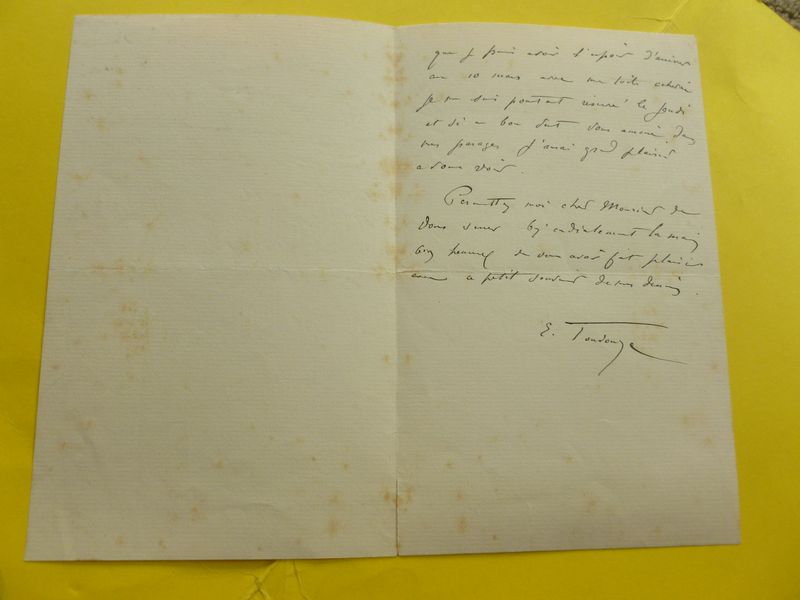 que je puis avoir l'espoir d'arriver
au 10 mars avec ma toile achevée
Je me suis pourtant réservé le jeudi
et si un bon vent vous amène dans
mes parages j'aurai grand plaisir
à vous voir.
Permettez moi cher Monsieur de
vous serrer bien cordialement la main
bien heureux de vous avoir fait plaisir
avec ce petit souvenir de mes dessins.
E. Toudouze